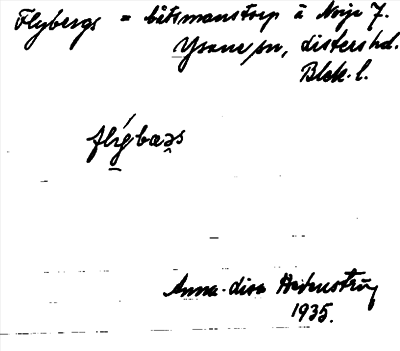 Flybergs = båtsmanstorp å Norje 7.
Ysane sn, Listers hd.
Blek. l.
flýbæəs
Anna-Lisa
1935.